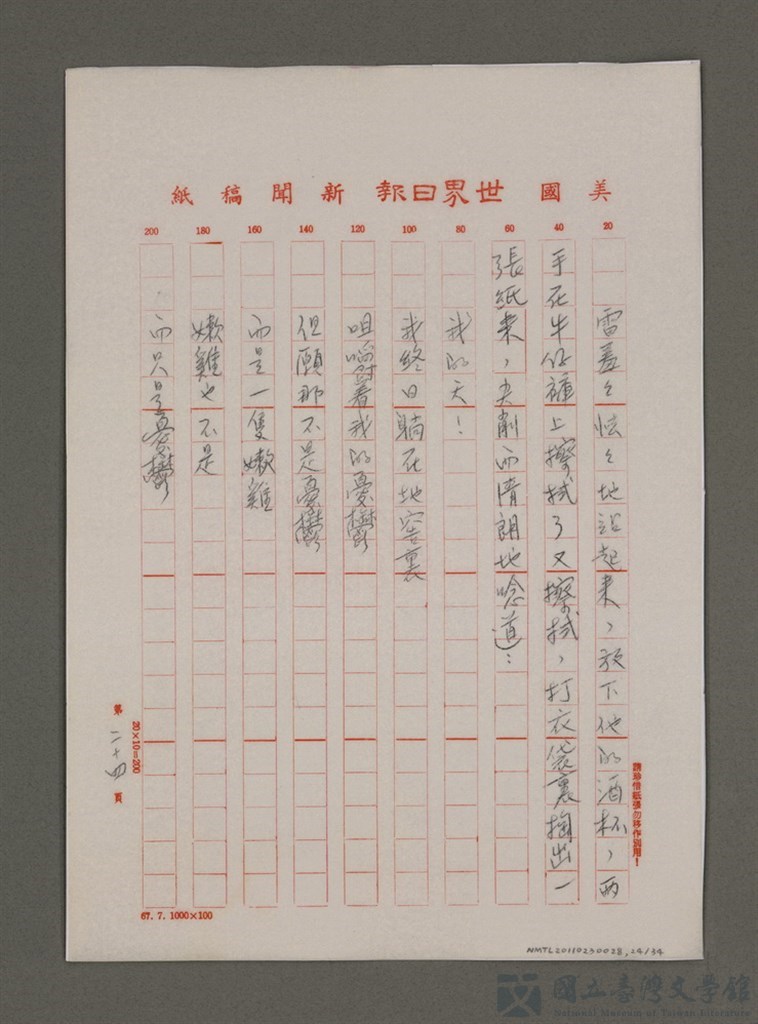 美國世界日報新聞稿紙
20 40 60 80 100 120 140 160 180 200
雷羞々怯々地站起來，放下他的酒杯，兩
手在牛仔褲上擦拭了又擦拭，打衣袋裏掏出一
張紙來，尖削而清朗地唸道：
我的天！
我終日躺在地窖裏
咀嚼着我的憂鬱
但願那不是憂鬱
而是一隻嫩雞
嫩雞也不是
而只是憂鬱
請珍惜紙張勿移作別用！
20×10=200
第二十四頁
67. 7. 1000×100
NMTL20110230028, 24/34
國立臺灣文學館
National Museum of Taiwan Literature